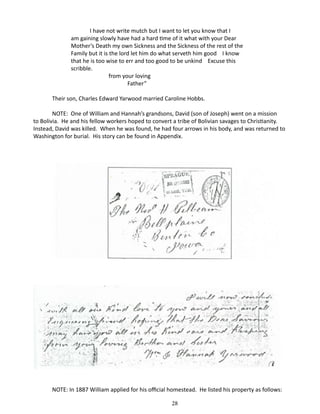 I have not write mutch but I want to let you know that I
am gaining slowly have had a hard time of it what with your Dear
Mother's Death my own Sickness and the Sickness of the rest of the
Family but it is the lord let him do what serveth him good   I know
that he is too wise to err and too good to be unkind   Excuse this
scribble.
from your loving
Father"
Their son, Charles Edward Yarwood married Caroline Hobbs.
NOTE:  One of William and Hannah's grandsons, David (son of Joseph) went on a mission
to Bolivia.  He and his fellow workers hoped to convert a tribe of Bolivian savages to Christianity.
Instead, David was killed.  When he was found, he had four arrows in his body, and was returned to
Washington for burial.  His story can be found in Appendix.
SPRAGUE
The Rev H
Bellplaine
Benton Co
Iowa
I will now conclude
with all our kind love to you and yours and all
hoping that the Dear Saviour
may have you all in his kind care and Keeping
from your loving Brother and Sister
Wm & Hannah Yarwood
NOTE: In 1887 William applied for his official homestead.  He listed his property as follows:
28